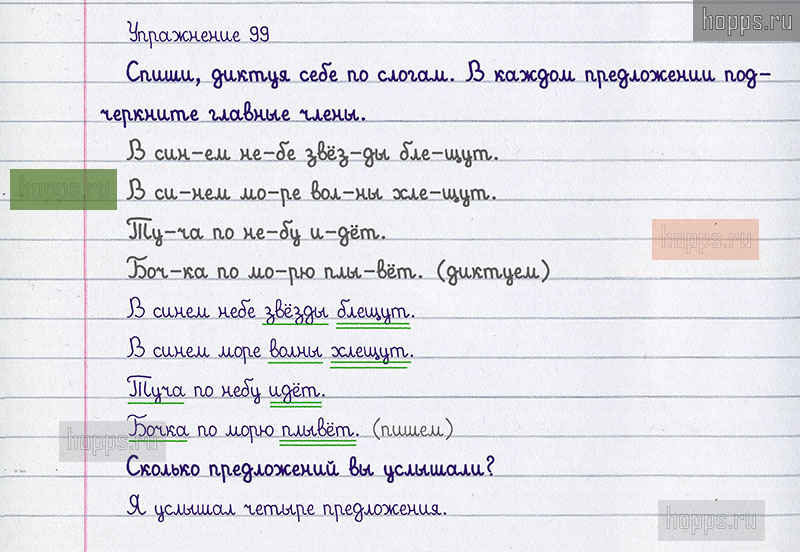 hopps.ru
Упражнение 99
Спиши, диктуя себе по слогам. В каждом предложении под-
черкните главные члены.
В син-ем не-бе звёз-ды бле-щут.
hopps.ru
В си-нем мо-ре вол-ны хле-щут.
Ту-ча по не-бу и-дёт.
hopps.ru
Боч-ка по мо-рю плы-вёт. (диктуем)
В синем небе звёзды блещут.
В синем море волны хлещут.
Туча по небу идёт.
Бочка по морю плывёт. (пишем)
hopps.ru
Сколько предложений вы услышали?
Я услышал четыре предложения.
hopps.ru